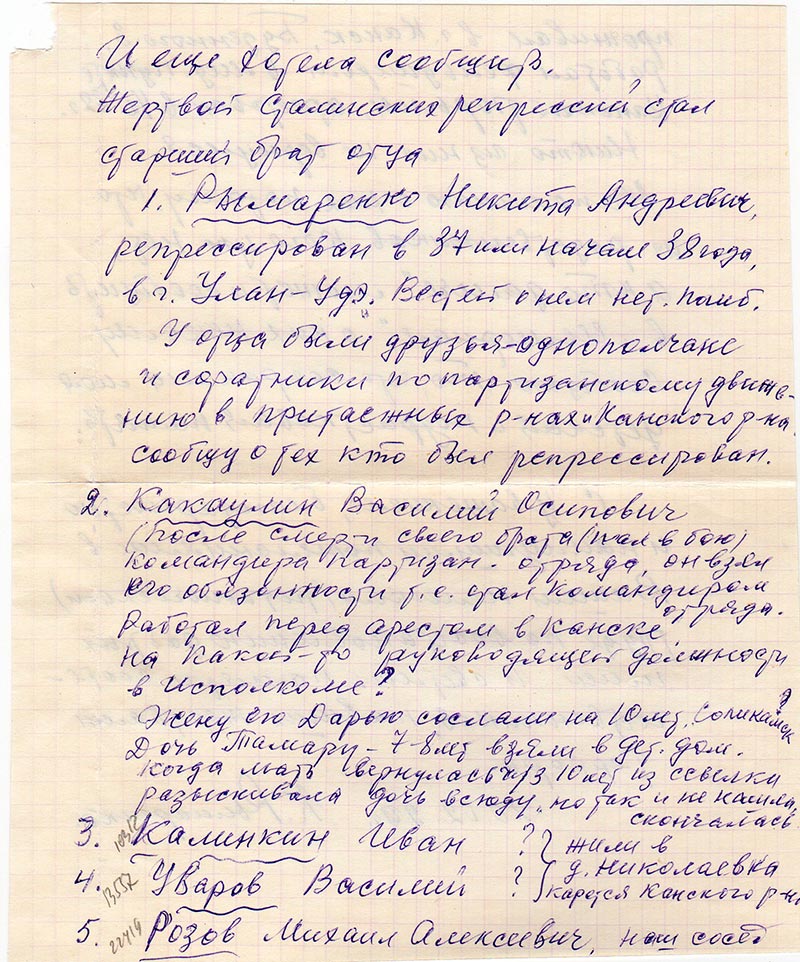 И еще хотела сообщить.
Жертвой Сталинских репрессий, стал
старший брат отца
1. Рымаренко Никита Андреевич,
репрессирован в 37 или начале 38 года,
в г. Улан-Удэ. Вестей о нем нет. Погиб.
У отца были друзья-однополчане
и соратники по партизанскому движе-
нию в притаежных р-нах и Канского р-на.
сообщу о тех кто был репрессирован.
2. Какаулин Василий Осипович
(после смерти своего брата (пал в бою)
командира партизан. отряда, он взял
его обязанности т.е. стал командиром
отряда.
Работал перед арестом в Канске,
на какой-то руководящей должности
в Исполкоме?
Жену его Дарью сослали на 10 лет, Соликамск ?
Дочь Тамару - 7-8 лет взяли в дет. дом.
когда мать вернулась ч/з 10 лет из ссылки
разыскивала дочь всюду, но так и не нашла,
скончалась.
3. Калинкин Иван ? } жили в
д. Николаевка
4. 13557 Уваров Василий ? } Канского р-на
5. 22419 Розов Михаил Алексеевич, наш сосед